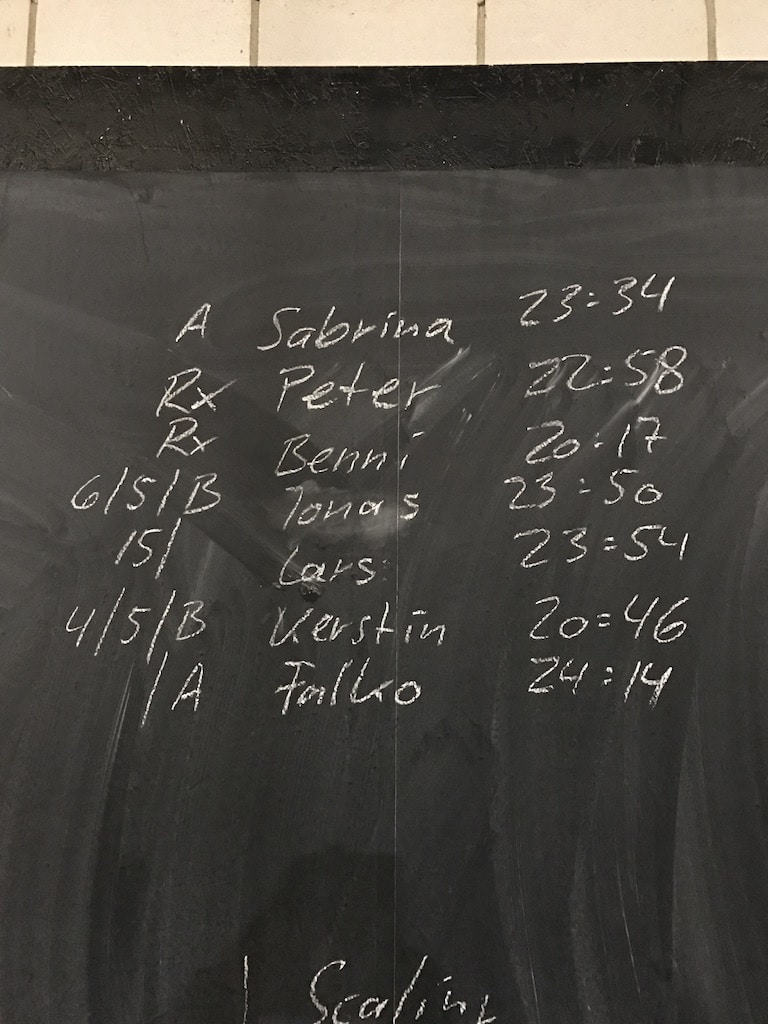 A Sabrina 23:34
Rx Peter 22:58
Rx Benni 20:17
6/5/B Jonas 23:50
15/ Lars 23:54
4/5/B Kerstin 20:46
/A Falko 24:14
| Scaling